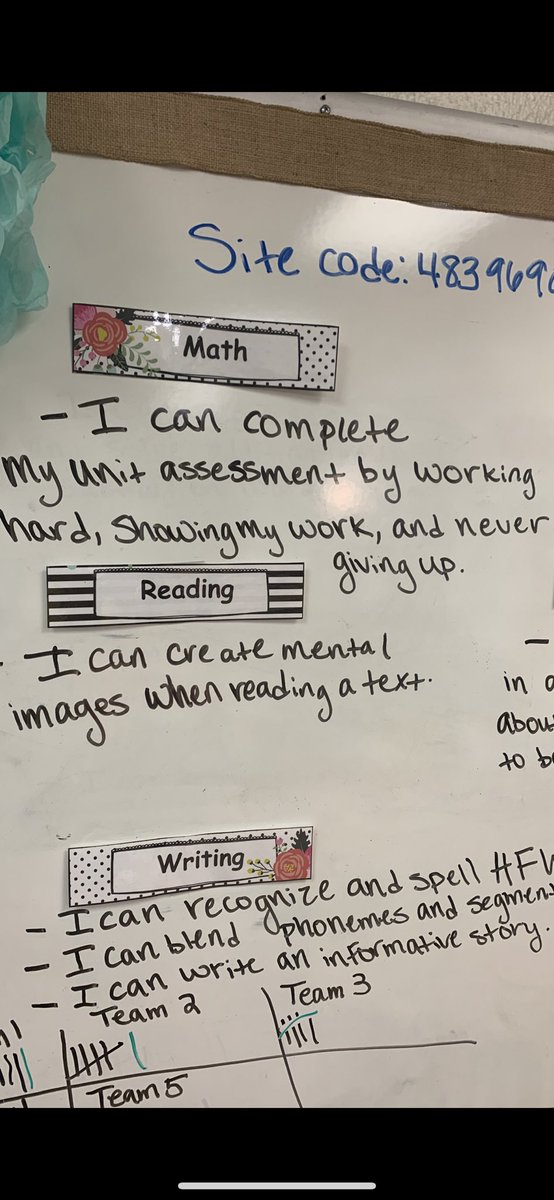 Site code: 483969
Math
- I can complete
my unit assessment by working
hard, showing my work, and never
giving up.
Reading
- I can create mental
images when reading a text.
-
in a
about
to be
Writing
- I can recognize and spell HFW
- I can blend phonemes and segment
- I can write an informative story.
Team 2
Team 3
Team 5